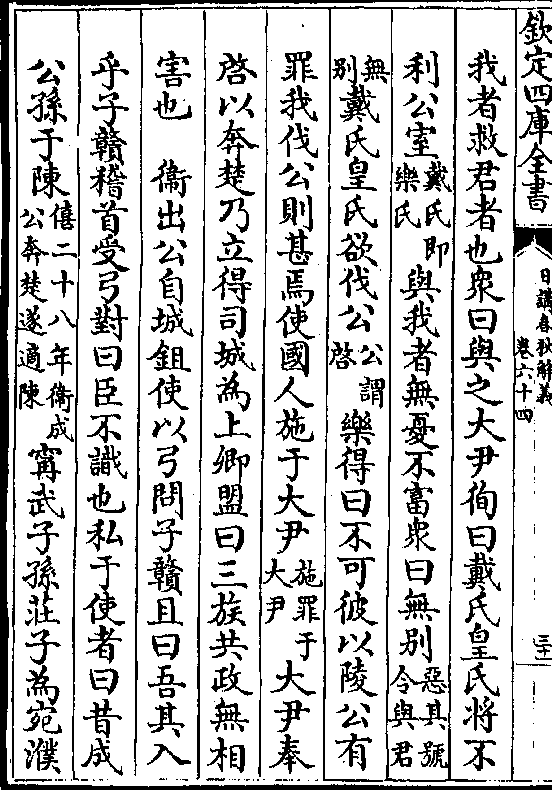 欽定四庫全書
日講春秋解義
卷六十四
三十一
我者救君者也衆曰與之大尹徇曰戴氏皇氏將不
利公室戴氏即樂氏與我者無憂不富衆曰無別惡其號令與君
無別戴氏皇氏欲伐公公謂啓樂得曰不可彼以陵公有
罪我伐公則甚焉使國人施于大尹施罪于大尹大尹奉
啓以奔楚乃立得司城為上卿盟曰三族共政無相
害也　衞出公自城鉏使以弓問子贛且曰吾其入
乎子贛稽首受弓對曰臣不識也私于使者曰昔成
公孫于陳僖二十八年衞成公奔楚遂適陳甯武子孫莊子為宛濮